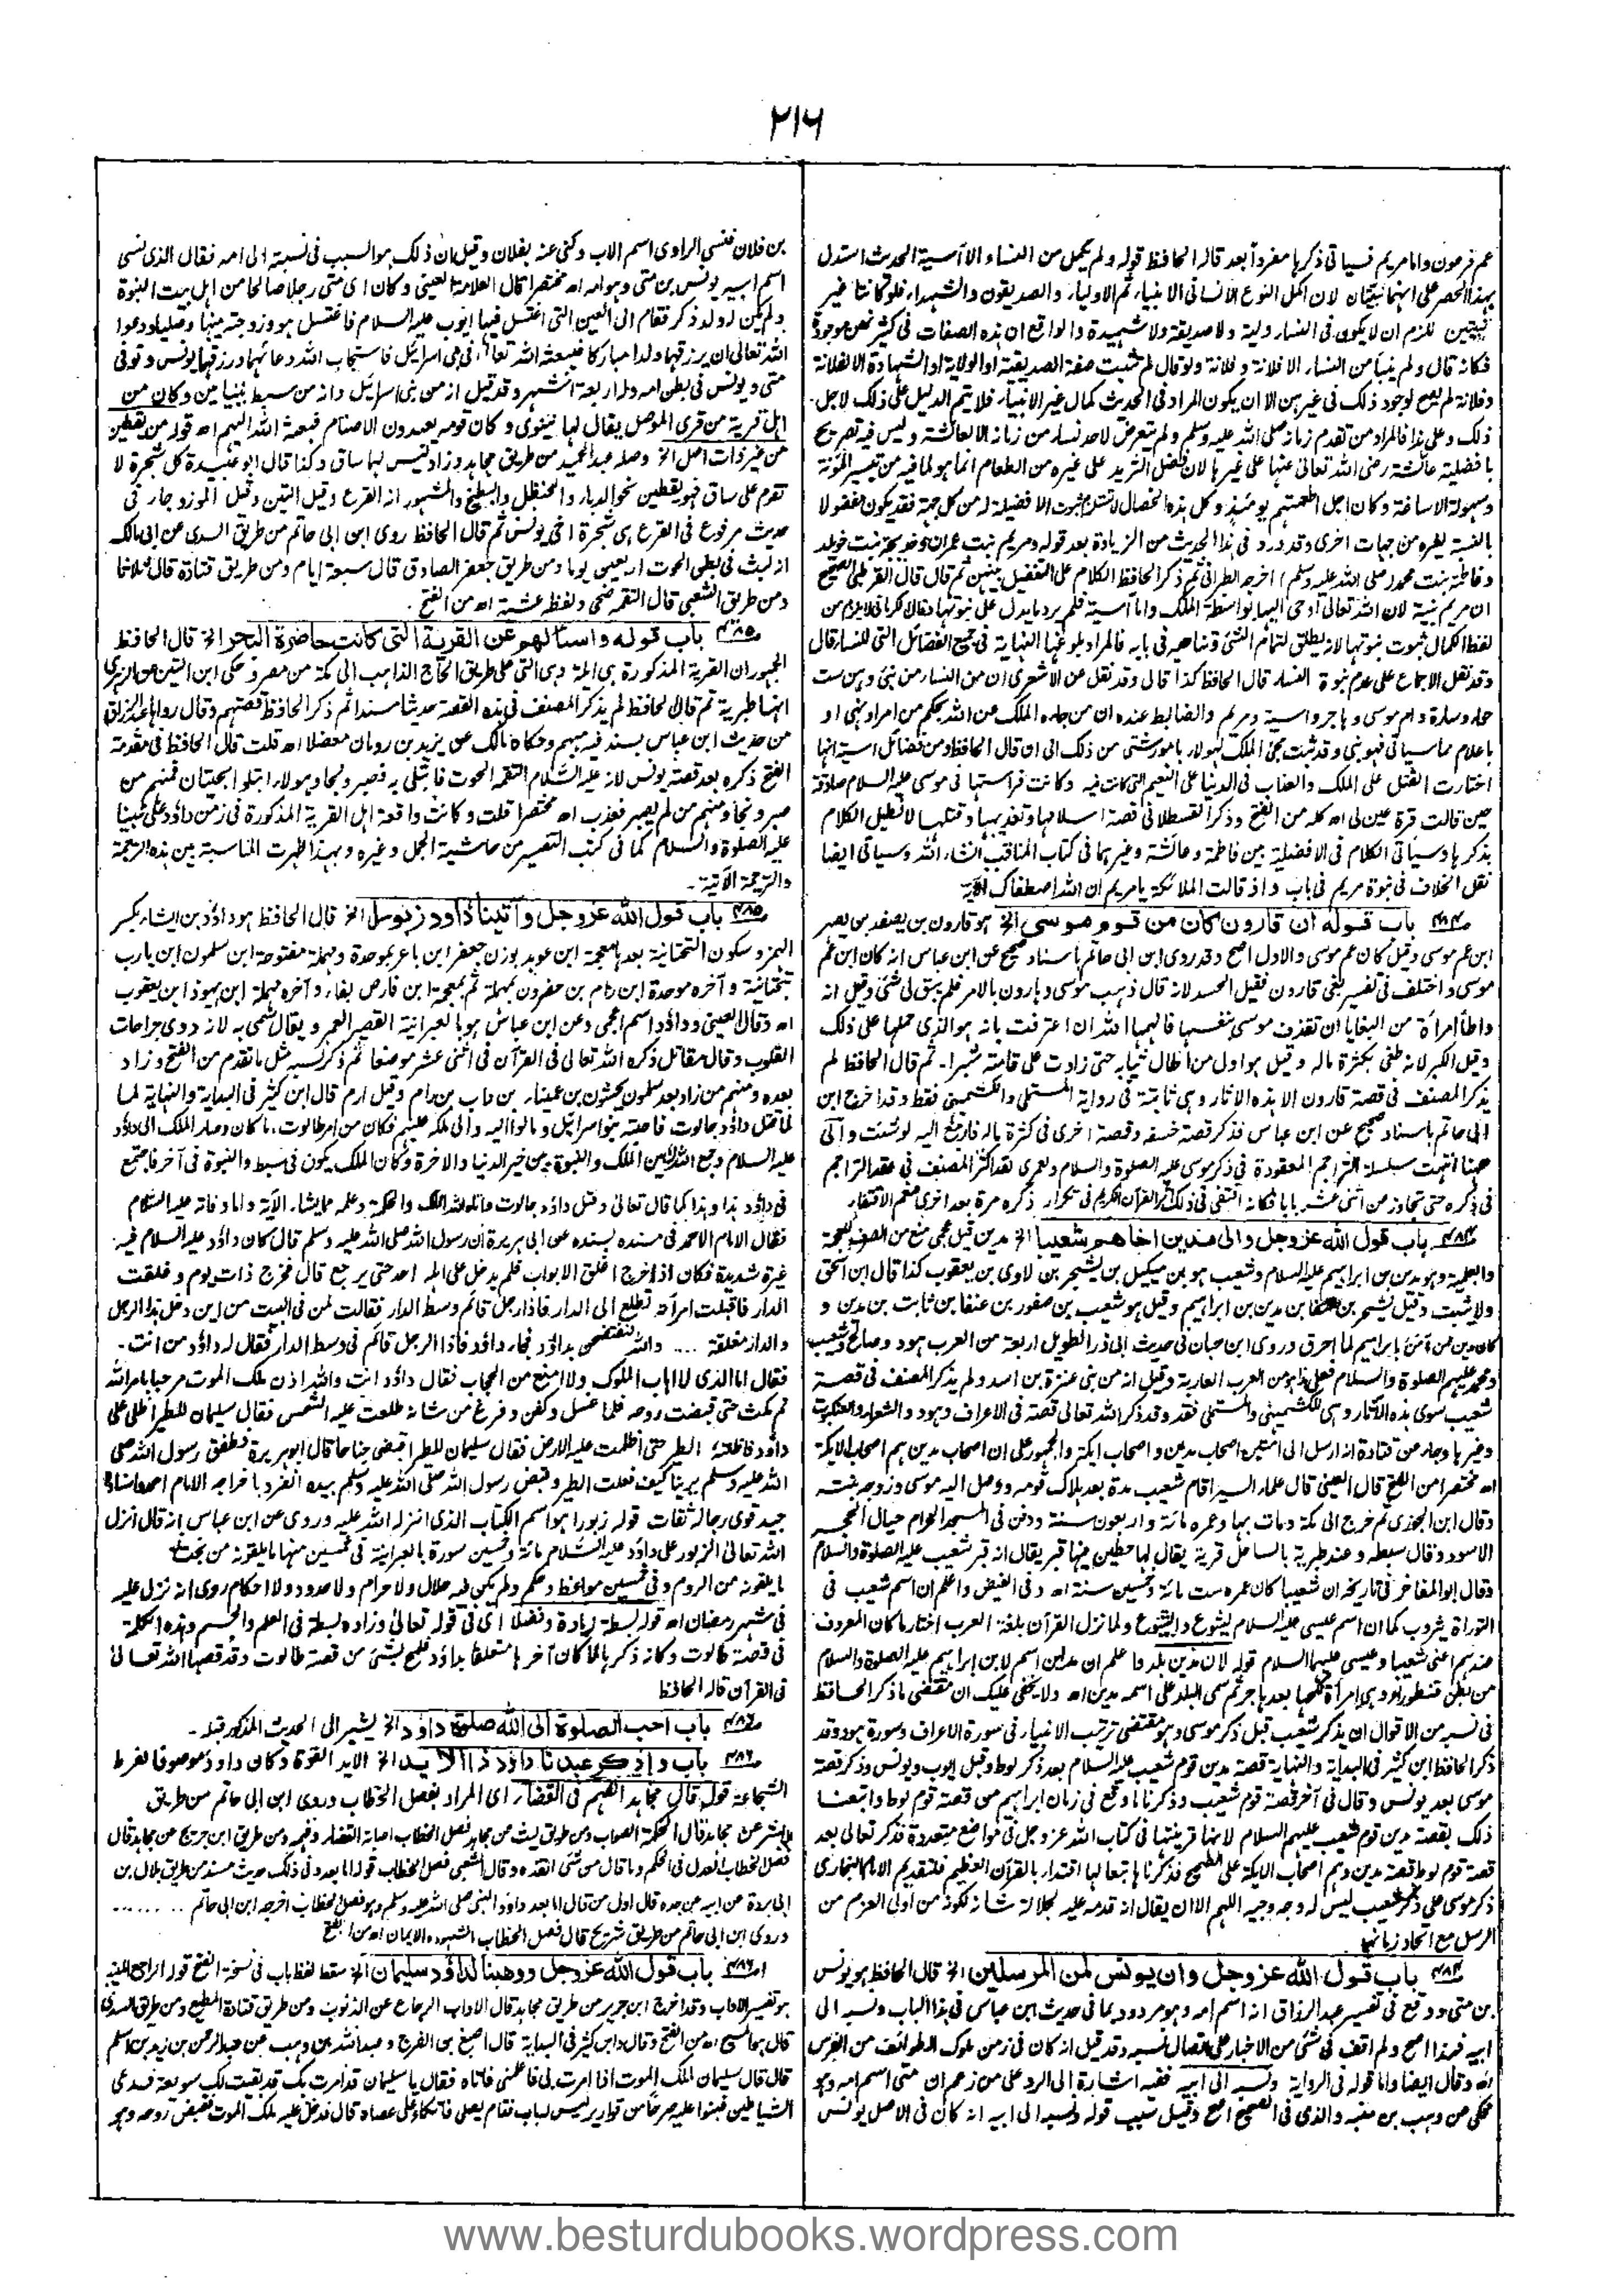 ٢١٦
عم فرعون واما مريم فسياتى ذكرها مفردا بعد قال الحافظ قوله ولم يكمل من النساء الا آسية الحديث استدل
بهذا الحصر على انهما نبيتان لان اكمل النوع الانسانى الانبياء ثم الاولياء والصديقون والشهداء فلو كانتا غير
نبيتين للزم ان لا يكون فى النساء ولية ولا صديقة ولا شهيدة والواقع ان هذه الصفات فى كثير منهن موجودة
فكانه قال ولم ينبأ من النساء الا فلانة وفلانة ولو قال لم تثبت صفة الصديقية او الولاية او الشهادة الا لفلانة
وفلانة لم يصح لوجود ذلك فى غيرهن الا ان يكون المراد فى الحديث كمال غير الانبياء فلا يتم الدليل على ذلك لاجل
ذلك وعلى هذا فالمراد من تقدم زمانه صلى الله عليه وسلم ولم يتعرض لاحد نساء من زمانه الا لعائشة وليس فيه تصريح
بافضلية عائشة رضى الله تعالى عنها على غيرها لان فضل الثريد على غيره من الطعام انما هو لما فيه من تيسير المؤنة
وسهولة الاساغة وكان اجل اطعمتهم يومئذ وكل هذه الخصال لا تستلزم ثبوت الافضلية له من كل جهة فقد يكون مفضولا
بالنسبة لغيره من جهات اخرى وقد ورد فى هذا الحديث من الزيادة بعد قوله ومريم بنت عمران وخديجة بنت خويلد
وفاطمة بنت محمد (صلى الله عليه وسلم) اخرجه الطبرانى ثم ذكر الحافظ الكلام على التفضيل بينهن ثم قال قال القرطبى الصحيح
ان مريم نبية لان الله تعالى اوحى اليها بواسطة الملك واما آسية فلم يرد ما يدل على نبوتها وقال الكرمانى لا يلزم من
لفظ الكمال ثبوت نبوتها لانه يطلق لتمام الشئ وتناهيه فى بابه فالمراد بلوغها النهاية فى جميع الفضائل التى للنساء قال
وقد نقل الاجماع على عدم نبوة النساء قال الحافظ كذا قال وقد نقل عن الاشعرى ان من النساء من نبئ وهن ست
حواء وسارة وام موسى وهاجر وآسية ومريم والضابط عنده ان من جاءه الملك عن الله بحكم من امر او نهى او
باعلام مما سياتى فهو نبى وقد ثبت مجئ الملك لهؤلاء بامور شتى من ذلك الى ان قال الحافظ ومن فضائل آسية انها
اختارت القتل على الملك والعذاب فى الدنيا على النعيم التى كانت فيه وكانت فراستها فى موسى عليه السلام صادقة
حين قالت قرة عين لى اه كله من الفتح وذكر القسطلانى قصة اسلامها وتعذيبها وقتلها لا نطيل الكلام
بذكرها وسياتى الكلام فى الافضلية بين فاطمة وعائشة وغيرهما فى كتاب المناقب انشاء الله وسياتى ايضا
نقل الخلاف فى نبوة مريم فى باب واذ قالت الملائكة يا مريم ان الله اصطفاك الآية
باب قوله ان قارون كان من قوم موسى الخ هو قارون بن يصفد بن يصهر
ابن عم موسى وقيل كان عم موسى والاول اصح وقد روى ابن ابى حاتم باسناد صحيح عن ابن عباس انه كان ابن عم
موسى واختلف فى تفسير بغى قارون فقيل الحسد لانه قال ذهب موسى وهارون بالامر فلم يبق لى شئ وقيل انه
واطأ امرأة من البغايا ان تقذف موسى بنفسها فالهمها الله ان اعترفت بانه هو الذى حملها على ذلك
وقيل الكبر لانه طغى بكثرة ماله وقيل هو اول من اطال ثيابه حتى زادت على قامته شبرا۔ ثم قال الحافظ لم
يذكر المصنف فى قصة قارون الا هذه الاثار وهى ثابتة فى رواية المستملى والكشميهنى فقط وقد اخرج ابن
ابى حاتم باسناد صحيح عن ابن عباس فذكر قصة خسفه وقصة اخرى فى كثرة ماله فارجع اليه لو شئت والى
هنا انتهت سلسلة التراجم المعقودة فى ذكر موسى عليه الصلوة والسلام ولعمرى لقد اكثر المصنف فى عقد التراجم
فى ذكره حتى تجاوز من اثنى عشر بابا فكانه اقتفى فى ذلك اثر القرآن الكريم فى تكرار ذكره مرة بعد اخرى
باب قول الله عز وجل والى مدين اخاهم شعيبا الخ مدين قيل عجمى منع من الصرف للعجمة
والعلمية وهو مدين بن ابراهيم عليه السلام وشعيب هو بن ميكيل بن يشجر بن لاوى بن يعقوب كذا قال ابن اسحق
ولا يثبت وقيل يشجر بن عنقا بن مدين بن ابراهيم وقيل هو شعيب بن صفور بن عنقا بن ثابت بن مدين و
كان مدين ممن آمن بابراهيم لما احرق وروى ابن حبان فى حديث ابى ذر الطويل اربعة من العرب هود وصالح وشعيب
ومحمد عليهم الصلوة والسلام فعلى هذا هو من العرب العاربة وقيل انه من بنى عنزة بن اسد ولم يذكر المصنف فى قصة
شعيب سوى هذه الآثار وهى للكشميهنى والمستملى فقط وقد ذكر الله تعالى قصته فى الاعراف وهود والشعراء والعنكبوت
وغيرها وجاء من قتادة انه ارسل الى امتين اصحاب مدين واصحاب ايكة والجمهور على ان اصحاب مدين هم اصحاب الايكة
اه مختصرا من الفتح قال العينى قال علماء السير اقام شعيب مدة بعد هلاك قومه ووصل اليه موسى وزوجه بنته
وقال ابن الجوزى ثم خرج الى مكة ومات بها وعمره مائة واربعون سنة ودفن فى المسجد الحرام حيال الحجر
الاسود وقال سبطه وعند طبرية بالساحل قرية يقال لها حطين فيها قبر يقال انه قبر شعيب عليه الصلوة والسلام
وقال ابو المفاخر فى تاريخه ان شعيبا كان عمره ست مائة وخمسين سنة اه وفى الفيض واعلم ان اسم شعيب فى
التوراة يثروب كما ان اسم عيسى عليه السلام يشوع وايشوع ولما نزل القرآن بلغة العرب اختار ما كان المعروف
عندهم اعنى شعيبا وعيسى عليهما السلام قوله لان مدين بلد فاعلم ان مدين اسم لابن ابراهيم عليه الصلوة والسلام
من بطن قنطورا وهى امرأة نكحها بعد هاجر ثم سمى البلد على اسمه مدين اه ولا يخفى عليك ان مقتضى ما ذكر الحافظ
فى نسبه من الاقوال ان يذكر شعيب قبل ذكر موسى وهو مقتضى ترتيب الانبياء فى سورة الاعراف وسورة هود وقد
ذكر الحافظ ابن كثير فى البداية والنهاية قصة مدين قوم شعيب عليه السلام بعد ذكر لوط وقبل ايوب ويونس وذكر قصة
موسى بعد يونس وقال فى آخر قصة قوم شعيب وذكرنا ما وقع فى زمان ابراهيم من قصة قوم لوط واتبعنا
ذلك بقصة مدين قوم شعيب عليهم السلام لانها قرينتها فى كتاب الله عز وجل فى مواضع متعددة فذكر تعالى بعد
قصة قوم لوط قصة مدين وهم اصحاب الايكة على الصحيح فذكرناها تبعا لها اقتداء بالقرآن العظيم فلتقديم الامام البخارى
ذكر موسى على ذكر شعيب ليس له وجه وجيه اللهم الا ان يقال انه قدمه عليه لجلالة شانه لكونه من اولى العزم من
الرسل مع اتحاد زمانهما
باب قول الله عز وجل وان يونس لمن المرسلين الخ قال الحافظ هو يونس
بن متى ووقع فى تفسير عبد الرزاق انه اسم امه وهو مردود بما فى حديث ابن عباس فى هذا الباب ونسبه الى
ابيه فهذا اصح ولم اقف فى شئ من الاخبار على اتصال نسبه وقد قيل انه كان فى زمن ملوك الطوائف من الفرس
اه وقال ايضا واما قوله فى الرواية ونسبه الى ابيه ففيه اشارة الى الرد على من زعم ان متى اسم امه وهو
محكى عن وهب بن منبه والذى فى الصحيح اصح وقيل سبب قوله ونسبه الى ابيه انه كان فى الاصل يونس
بن فلان فنسى الراوى اسم الاب وكنى عنه بفلان وقيل ان ذلك هو السبب فى نسبته الى امه فقال الذى نسى
اسم ابيه يونس بن متى وهو امه اه مختصرا قال العلامة العينى وكان اى متى رجلا صالحا من اهل بيت النبوة
ولم يكن له ولد ذكر فقام الى العين التى اغتسل فيها ايوب عليه السلام فاغتسل هو وزوجته منها وصليا ودعوا
الله تعالى ان يرزقهما ولدا مباركا فيبعثه الله تعالى فى بنى اسرائيل فاستجاب الله دعائهما ورزقهما يونس وتوفى
متى ويونس فى بطن امه وله اربعة اشهر وقد قيل انه من بنى اسرائيل وانه من سبط بنيامين وكان من
اهل قرية من قرى الموصل يقال لها نينوى وكان قومه يعبدون الاصنام فبعثه الله اليهم اه قوله من يقطين
من غير ذات اصل الخ وصله عبد الحميد من طريق مجاهد وزاد ليس لها ساق وكذا قال ابو عبيدة كل شجرة لا
تقوم على ساق فهو يقطين نحو الدباء والحنظل والبطيخ والمشهور انه القرع وقيل التين وقيل الموز وجاء فى
حديث مرفوع فى القرع هى شجرة اخى يونس ثم قال الحافظ روى ابن ابى حاتم من طريق السدى عن ابى مالك
انه لبث فى بطن الحوت اربعين يوما ومن طريق جعفر الصادق قال سبعة ايام ومن طريق قتادة قال ثلاثا
ومن طريق الشعبى قال التقمه ضحى ولفظه عشية اه من الفتح.
باب قوله واسألهم عن القرية التى كانت حاضرة البحر الخ قال الحافظ
الجمهور ان القرية المذكورة هى ايلة وهى التى على طريق الحاج الذاهب الى مكة من مصر وحكى ابن التين عن الزهرى
انها طبرية ثم قال الحافظ لم يذكر المصنف فى هذه القصة حديثا مسندا ثم ذكر الحافظ قصتهم وقال رواها عبد الرزاق
من حديث ابن عباس بسند فيه مبهم وحكاه مالك عن يزيد بن رومان معضلا اه قلت قال الحافظ فى مقدمة
الفتح ذكره بعد قصة يونس لانه عليه السلام التقمه الحوت فابتلى به فصبر ونجا وهؤلاء ابتلوا بحيتان فمنهم من
صبر ونجا ومنهم من لم يصبر فعذب اه مختصرا قلت وكانت واقعة اهل القرية المذكورة فى زمن داؤد على نبينا
عليه الصلوة والسلام كما فى كتب التفسير من حاشية الجمل وغيره وبهذا ظهرت المناسبة بين هذه الترجمة
والترجمة الآتية۔
باب قول الله عز وجل وآتينا داود زبورا الخ قال الحافظ هو داؤد بن ايشا بكسر
الهمزة وسكون التحتانية بعدها معجمة ابن عوبد بوزن جعفر ابن باعر بموحدة ومهملة مفتوحة ابن سلمون ابن يارب
بتحتانية وآخره موحدة ابن رام بن حضرون بمهملة ثم معجمة ابن فارص بفاء وآخره مهملة ابن يهوذ ابن يعقوب
اه وقال العينى وداؤد اسم اعجمى وعن ابن عباس هو بالعبرانية القصير العمر ويقال سمى به لانه دوى جراحات
القلوب وقال مقاتل ذكره الله تعالى فى القرآن فى اثنى عشر موضعا ثم ذكر نسبه مثل ما تقدم من الفتح وزاد
بعده ومنهم من زاد بعد سلمون يحشون بن عمينا بن داب بن رام وقيل ارم قال ابن كثير فى البداية والنهاية لما
لما قتل داؤد جالوت فاحبته بنو اسرائيل ومالوا اليه والى ملكه عليهم فكان من امر طالوت ما كان وصار الملك الى داؤد
عليه السلام وجمع الله له بين الملك والنبوة بين خير الدنيا والآخرة وكان الملك يكون فى سبط والنبوة فى آخر فاجتمع
فى داؤد هذا وهذا كما قال تعالى وقتل داؤد جالوت وآتاه الله الملك والحكمة وعلمه مما يشاء الآية واما وفاته عليه السلام
فقال الامام الاحمد فى مسنده بسنده عن ابى هريرة ان رسول الله صلى الله عليه وسلم قال كان داؤد عليه السلام فيه
غيرة شديدة فكان اذا خرج اغلق الابواب فلم يدخل على اهله احد حتى يرجع قال فخرج ذات يوم وغلقت
الدار فاقبلت امرأته تطلع الى الدار فاذا رجل قائم وسط الدار فقالت لمن فى البيت من اين دخل هذا الرجل
والدار مغلقة .... والله لنفتضحن بداؤد فجاء داؤد فاذا الرجل قائم فى وسط الدار فقال له داؤد من انت۔
فقال انا الذى لا اهاب الملوك ولا امنع من الحجاب فقال داؤد انت والله اذن ملك الموت مرحبا بامر الله
ثم مكث حتى قبضت روحه فلما غسل وكفن وفرغ من شانه طلعت عليه الشمس فقال سليمان للطير اظلى على
داؤد فاظلته الطير حتى اظلمت عليه الارض فقال سليمان للطير اقبضى جناحا قال ابو هريرة فطفق رسول الله صلى
الله عليه وسلم يرينا كيف فعلت الطير وقبض رسول الله صلى الله عليه وسلم بيده انفرد باخراجه الامام احمد اسناده
جيد قوى رجاله ثقات قوله زبورا هو اسم الكتاب الذى انزله الله عليه وروى عن ابن عباس انه قال انزل
الله تعالى الزبور على داؤد عليه السلام مائة وخمسين سورة بالعبرانية فى خمسين منها ما يلقونه من بخت
ما يلقونه من الروم وفى خمسين مواعظ وحكم ولم يكن فيه حلال ولا حرام ولا حدود ولا احكام روى انه نزل عليه
فى شهر رمضان اه قوله بسطة زيادة وفضلا اى فى قوله تعالى وزاده بسطة فى العلم والجسم وهذه الكلمة
فى قصة طالوت وكانه ذكرها لما كان آخرها متعلقا بداؤد فلمح بشئ من قصة طالوت وقد قصها الله تعالى
فى القرآن قاله الحافظ
باب احب الصلوة الى الله صلوة داؤد الخ يشير الى الحديث المذكور قبله۔
باب واذكر عبدنا داؤد ذا الايد الخ الايد القوة وكان داود موصوفا بفرط
الشجاعة قوله قال مجاهد الفهم فى القضاء اى المراد بفصل الخطاب وروى ابن ابى حاتم من طريق
ابى بشر عن مجاهد قال الحكمة الصواب ومن طريق ليث من مجاهد فصل الخطاب اصابة القضاء وفهمه ومن طريق ابن جريج عن مجاهد قال
فصل الخطاب العدل فى الحكم وما قال من شئ انفذه وقال الشعبى فصل الخطاب قوله اما بعد وفى ذلك حديث مسند من طريق بلال بن
ابى بردة عن ابيه عن جده قال اول من قال اما بعد داود النبى صلى الله عليه وسلم وهو فصل الخطاب اخرجه ابن ابى حاتم ........
وروى ابن ابى حاتم من طريق شريح قال فصل الخطاب الشهود والايمان اه من الفتح
باب قول الله عز وجل ووهبنا لداؤد سليمان الخ سقط لفظ باب فى نسخة الفتح قوله الراجع المنيب
هو تفسير الاواب وقد اخرج ابن جرير من طريق مجاهد قال الاواب الرجاع عن الذنوب ومن طريق قتادة المطيع ومن طريق السدى
قال هو المسبح اه من الفتح وقال ابن كثير فى البداية قال اصبغ بن الفرج وعبد الله بن وهب عن عبد الرحمن بن زيد بن اسلم
قال قال سليمان لملك الموت اذا امرت بى فاعلمنى فاتاه فقال يا سليمان قد امرت بك قد بقيت لك سويعة فدعى
الشياطين فبنوا عليه صرحا من قوارير ليس له باب فقام يصلى فاتكأ على عصاه قال فدخل عليه ملك الموت فقبض روحه وهو
www.besturdubooks.wordpress.com